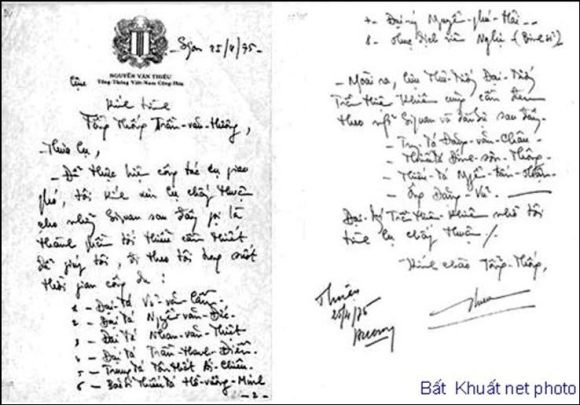 Sgon 25/4/75
NGUYỄN VĂN THIỆU
Tổng Thống Việt-Nam Cộng-Hòa
Kính trình
Tổng Thống Trần-văn-Hương,
Thưa Cụ,
- Để thực hiện công tác Cụ giao
phó, tôi kính xin Cụ chấp thuận
cho những Sĩ quan sau đây gọi là
thành phần tối thiểu cần thiết
để giúp tôi, đi theo tôi trong suốt
thời gian công du:
1 - Đại Tá Võ văn Cầm
2 - Đại Tá Nguyễn văn Đức
3 - Đại Tá Nhan-văn-Thiệt
4 - Đại Tá Trần-Thanh-Điền
5 - Trung Tá Tôn Thất Ái-Chiêu
6 - Bác sĩ Thiếu Tá Hồ-vương-Minh
- 2 -
7 - Đại-úy Nguyễn-phú-Hải
8 - Nghị (Binh sĩ)
- Ngoài ra, Cựu Thủ-Tướng Đại-Tướng
Trần Thiện Khiêm cũng cần đem
theo một Sĩ quan và sau đây
- Tr. Tá Đặng-văn-Châu
- Thiếu Tá Đinh-sơn-Thông
- Thiếu-Tá
- Ông Đặng-Vũ
Đại-tướng Trần Thiện-Khiêm nhờ tôi
trình Cụ chấp Thuận
Kính chào Tổng-Thống,
Thuận
25/4/75
Hương
Bất Khuất net photo